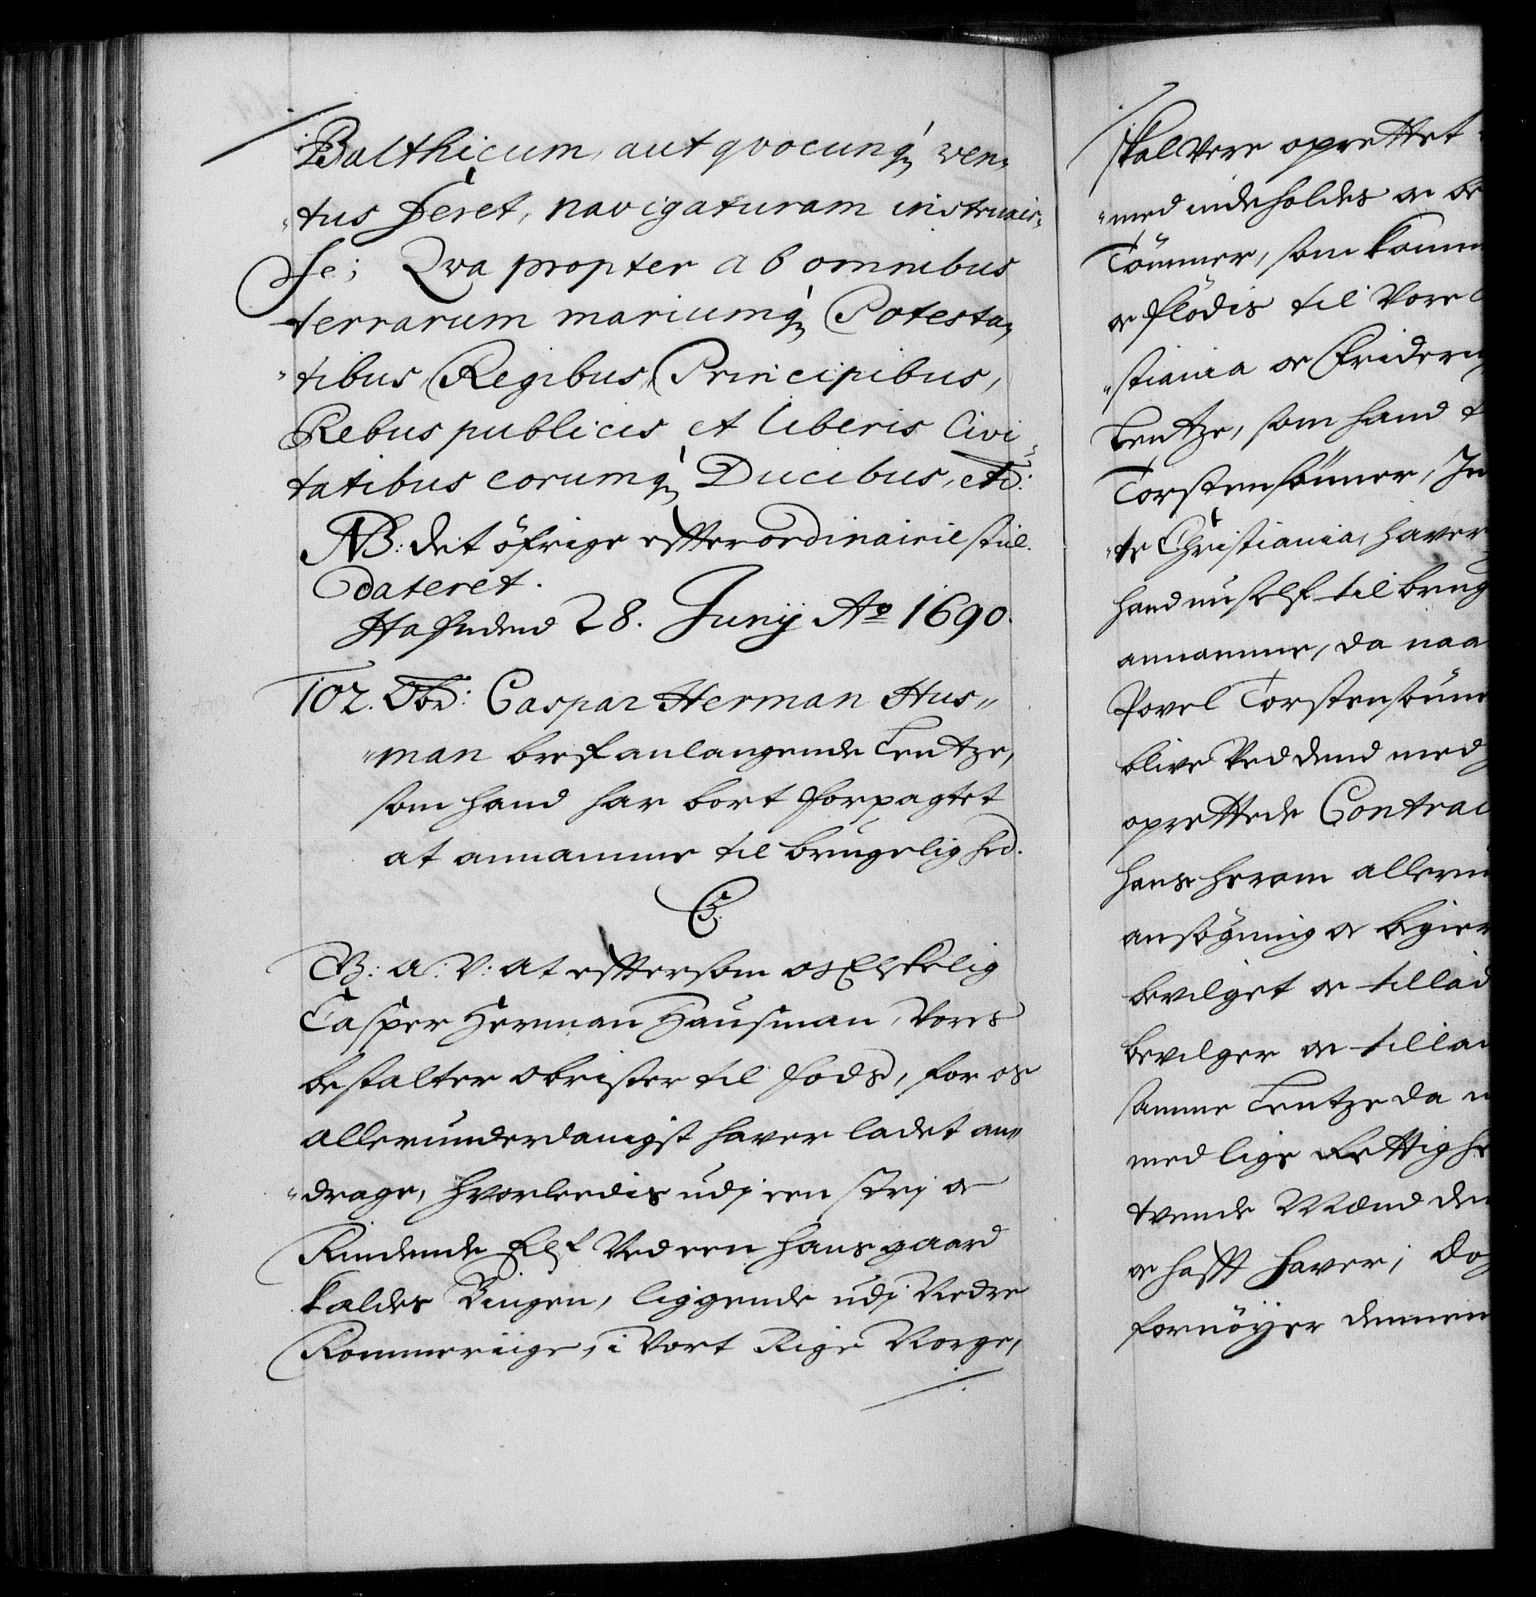 Balthicum, aut qvocunq, ven,
tus feret, navigaturam instruais,
se; Qva propter ab omnibus
terrarum mariumq, Potesta,
tibus Regibus, Principibus,
Rebus publicis et liberis Civi,
tatibus eorumq, Ducibus, etc:
NB: det öfrige efter ordinairie stiil.
dateret.
Hafnden 28. Junij Ao 1690.
102. Obr: Caspar Herman Hus,,
man bref anlangende Lentze,
som hand har bort forpagtet
at annamme til brugelighed.
C5.
G: A: V: at eftersom os Elskelig
Casper Herman Hausman, Vores
bestalter Obrister til fods, for os
allerunderdanigst haver ladet an,,
drage, hvorledis udj een strj oc
Rindende Elf Ved een hans gaard
kaldes Bingen, liggende udj Nedre
Rommeriige, i Vort Rige Norge,
skal Vere oprettet
med indeholdes oc be
Tömmer, som komm
oc flödis til Vore
stiania oc Fridern
Lentze, som hand
Torstensönner, In
te Christiania, haver
hand nu self til brug
annamme, da naa
Povel Torstensönn
blive Ved dend med
oprettede Contrac
hans herom alleru
ansögning oc begier
bevilget oc tillad
bevilger oc tillad
samme Lentze da
med lige Rettighe
tvende Mænd den
oc hafft haver; dog
fornöyer dennem